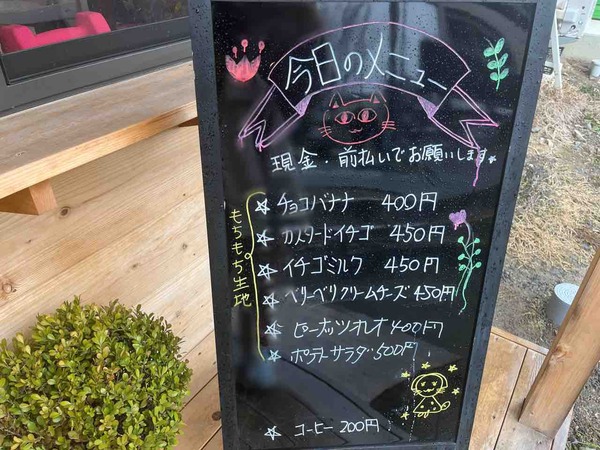 今日のメニュー
現金・前払いでお願いします。
もちもち生地
☆チョコバナナ 400円
☆カスタードイチゴ 450円
☆イチゴミルク 450円
☆ベリーベリクリームチーズ 450円
☆ピーナッツオレオ 400円
☆ポテトサラダ 500円
☆コーヒー 200円